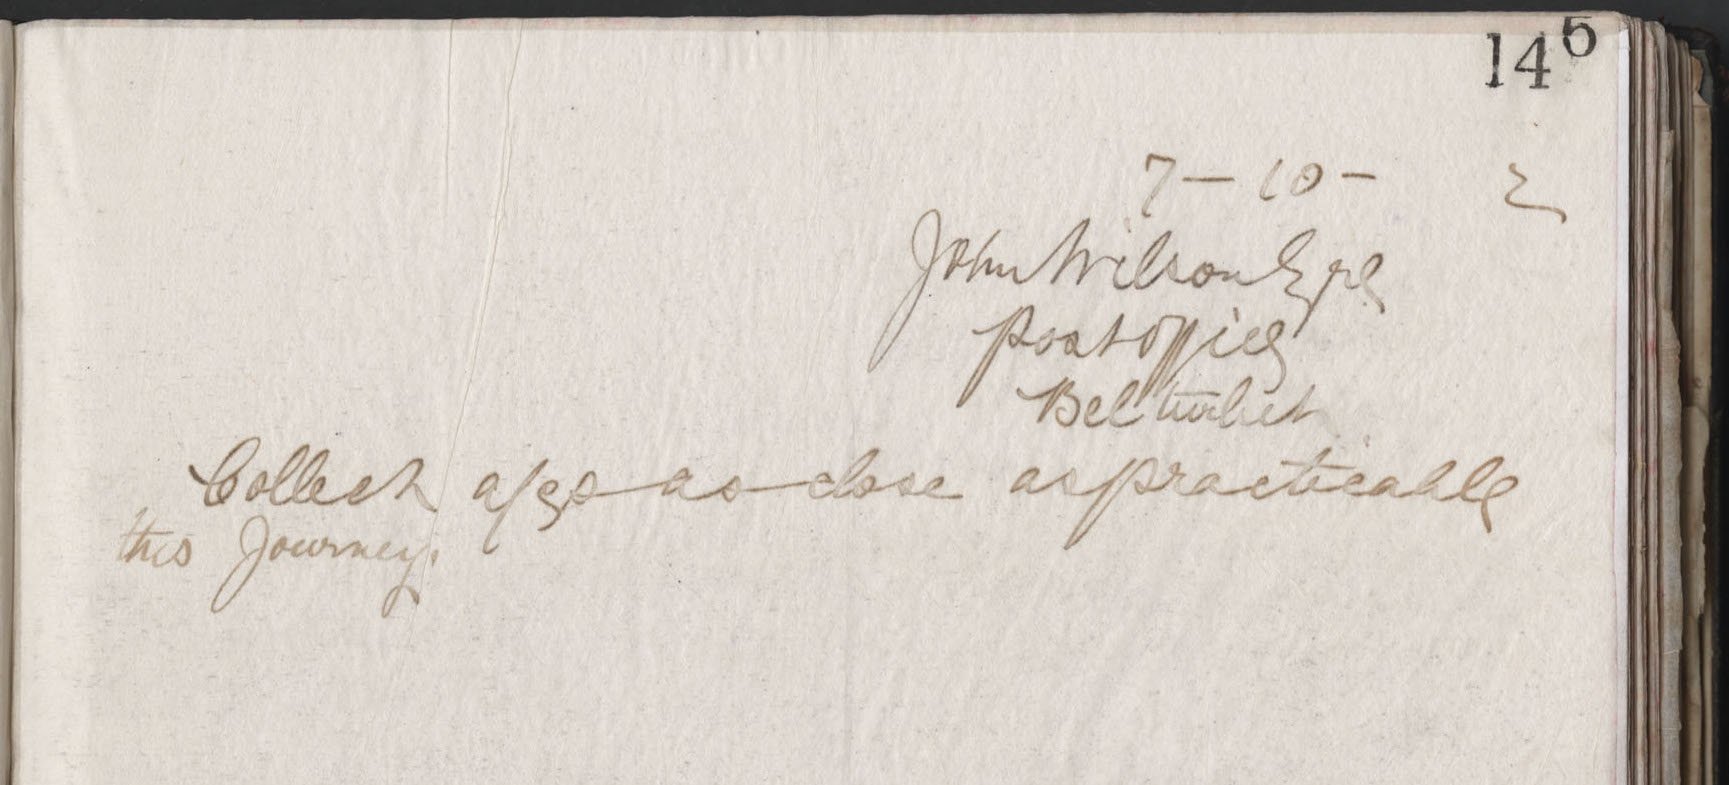 145
7 - 10 - 2
John Wilson Esqre
Post office
Belturbet
Collect a/cs as close as practicable
this Journey.